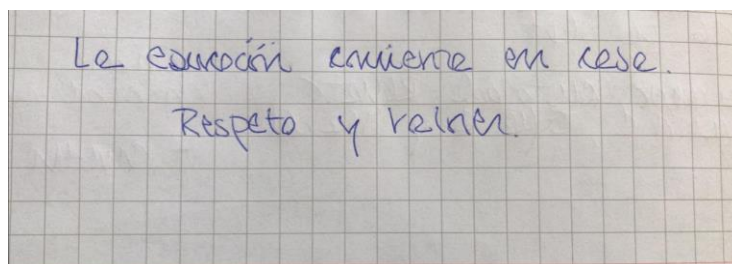 La educación comienza en casa.
Respeto y valores.